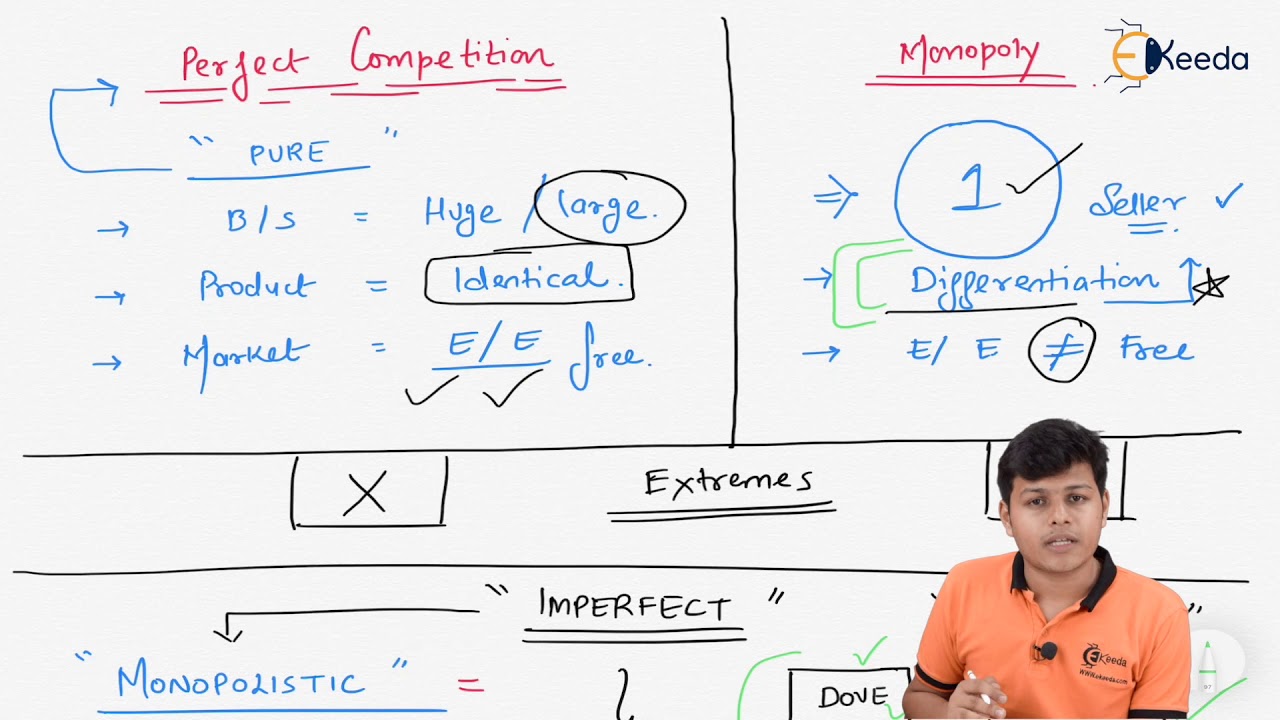 Perfect Competition
" PURE "
→ B/S = Huge / large.
→ Product = Identical.
→ Market = E/E free.
Monopoly
EKeeda
⇒ 1 Seller ✓
→ Differentiation ↑
→ E/ E ≠ Free
X
Extremes
" IMPERFECT "
" MONOPOLISTIC " =
DOVE
EKeeda
www.ekeeda.com
97